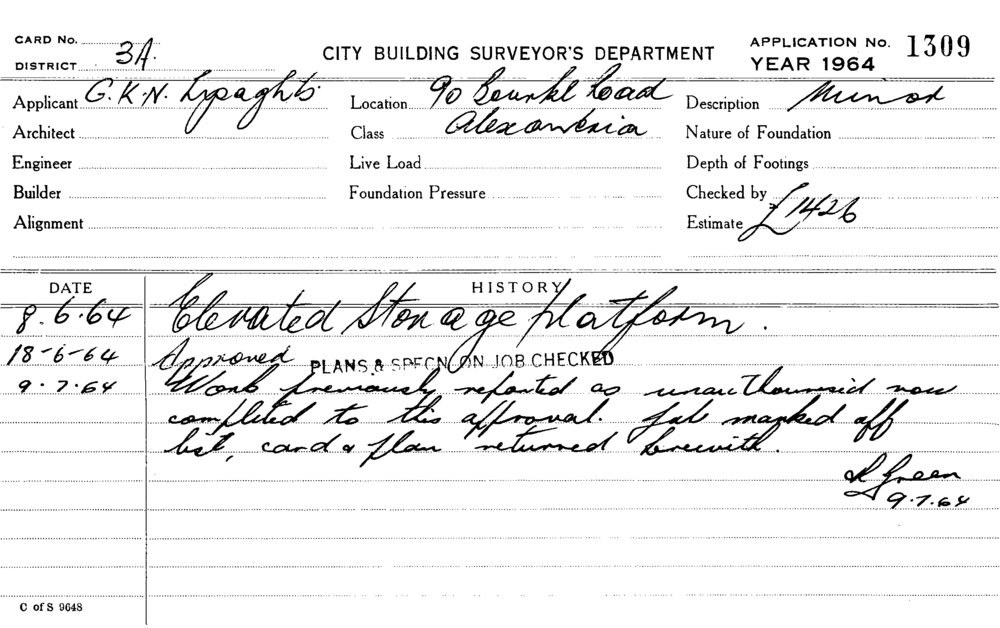 CARD No.
DISTRICT 3A.
CITY BUILDING SURVEYOR'S DEPARTMENT
APPLICATION No. 1309
YEAR 1964
Applicant G.K.N. Lysaghts.
Location 90 Bourke Road
Description Minor
Architect
Class Alexandria
Nature of Foundation
Engineer
Live Load
Depth of Footings
Builder
Foundation Pressure
Checked by
Alignment
Estimate £1426
DATE
HISTORY
8.6.64 Elevated Storage platform.
18-6-64 Approved PLANS & SPECN ON JOB CHECKED
9.7.64 Work previously reported as unauthourised now
completed to this approval. Job marked off
list, card & plan returned herewith.
Green
9.7.64
C of S 9648